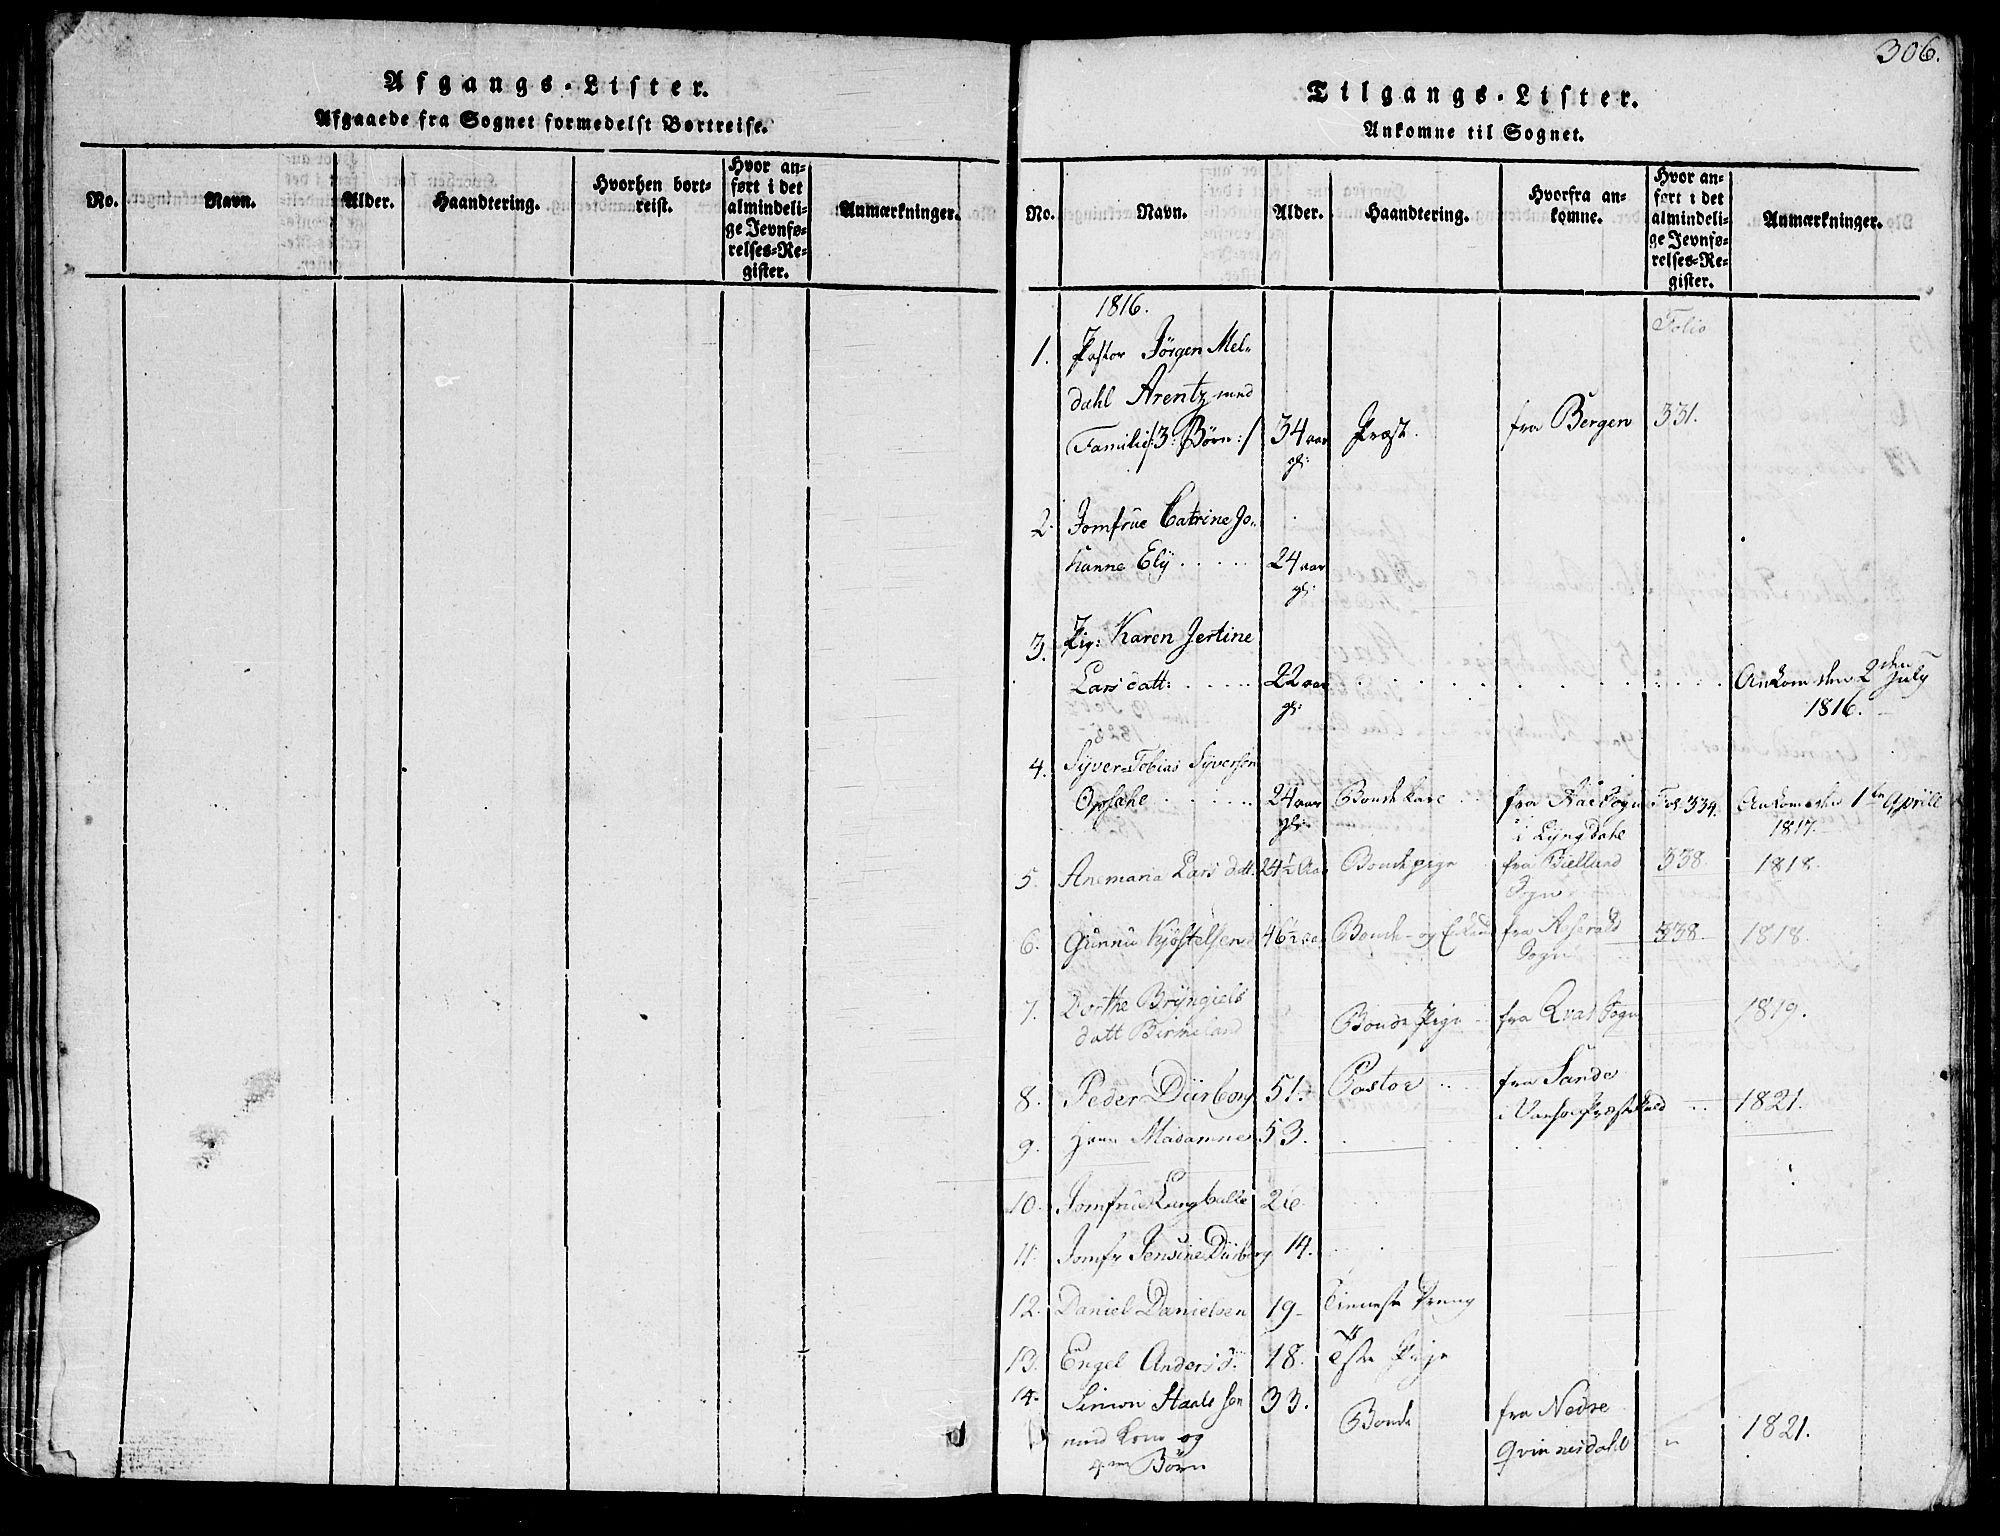 Afgangs-Lister.
Afgaaede fra Sognet formedelst Bortreise.
No.
Navn.
Alder.
Haandtering.
Hvorhen bort-
reist.
Hvor an-
ført i det
almindeli-
ge Jevnfø-
relses-Re-
gister.
Anmærkninger.
306.
Tilgangs-Lister.
Ankomne til Sognet.
No.
Navn.
Alder.
Haandtering.
Hvorfra an-
komne.
Hvor an-
ført i det
almindeli-
ge Jevnfø-
relses-Re-
gister.
Anmærkninger.
1816.
Folio
1. Pastor Jørgen Mel-
dahl Arentz med
Familie /: 3: Børn :/ 34 aar Præst. fra Bergen 331.
gl:
2. Jomfrue Catrine Jo-
hanne Ely 24 aar
gl:
3. Pig: Karen Jertine
Lars datt: 22 aar Ankom den 2den July
gl: 1816.
4. Syver Tobias Syversen
Opsahl 24 aar Bondekarl fra Aaesogn Fol. 334. Ankom den 1ste Aprill
gl: i Lyngdahl 1817.
5. Anemaria Lars datt. 24½ Aar Bondepige fra Bielland 338. 1818.
Sogn
6. Gunnu Kjøstelsen 46½ aar Bonde- og fra Aaserald 338. 1818.
Sogn
7. Dorthe Bryngiels
datt Birkeland Bonde Pige fra Qvas Sogn 1819.
8. Peder Dürborg 51. Pastor fra Sande
i Præstekald 1821.
9. Hans Madamme 53.
10. Jomfrue 26
11. Jomfr Jensine Dürborg 14.
12. Daniel Danielsen 19 Tieneste Dreng
13. Engel Anders d. 18. Tste Pige
14. Simon Staalesen 33. Bonde fra Nedre
med Kone og Qvinnesdahl " 1821.
4re Børn